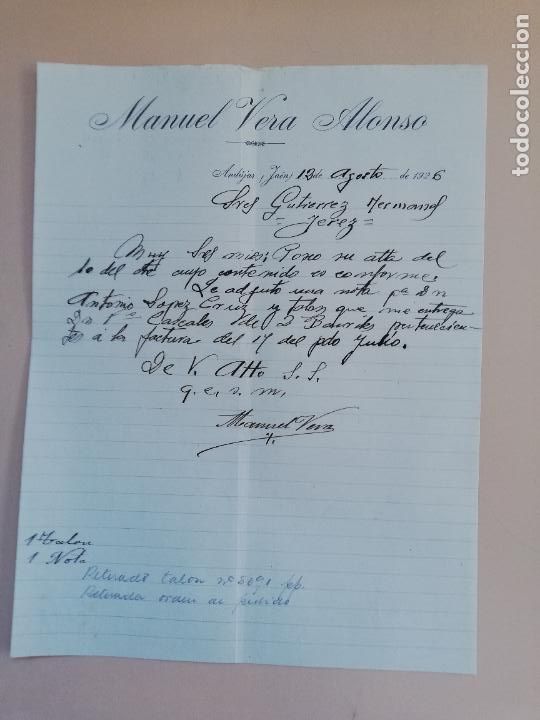 Manuel Vera Alonso
Andújar (Jaén) 12 de Agosto de 1926
Sres Gutierrez Hermanos
= Jerez =
Muy Sres mios: Pongo su atta del
10 del cte cuyo contenido es conforme.
Le adjunto una nota pª Dn
Antonio Lopez Cruz y talon que me entrega
Dn Fco Cascales de 2 Barriles pertenecien-
tes a la factura del 17 del pdo Julio.
De V. Atto S. S.
q. e. s. m.
Manuel Vera
1 Talon
1 Nota
Retirado talon nº 8091
Retirada orden de pedido
todocoleccion